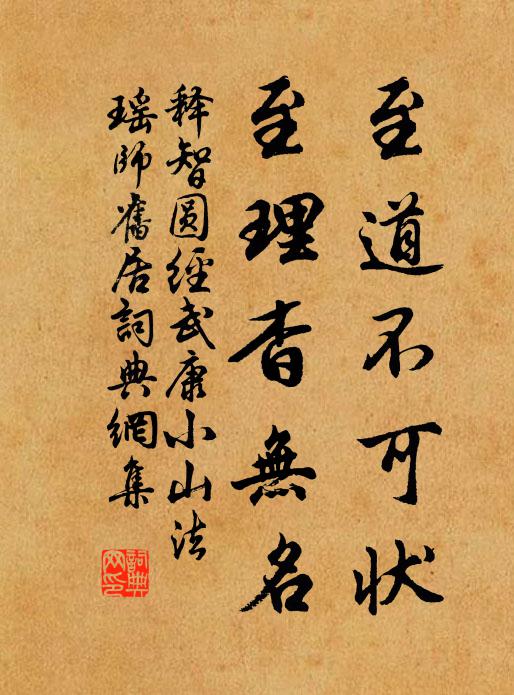 至道不可状
至理杳無名
释智圆經武康小山法
瑶師舊居詞典網集
詞典
网印